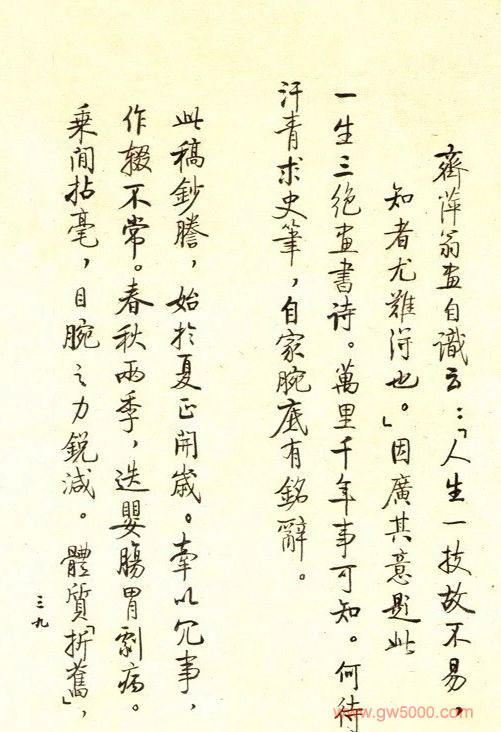 齊萍翁畫自識云：「人生一技故不易，
知者尤難得也。」因廣其意題此
一生三絶畫書诗。萬里千年事可知。何待
汗青求史筆，自家腕底有銘辭。
此稿鈔謄，始於夏正開歲。牽以冗事，
作辍不常。春秋兩季，迭嬰腸胃劇病。
乘间拈毫，目腕之力銳減。體質「折舊」，
三九
www.gw5000.com